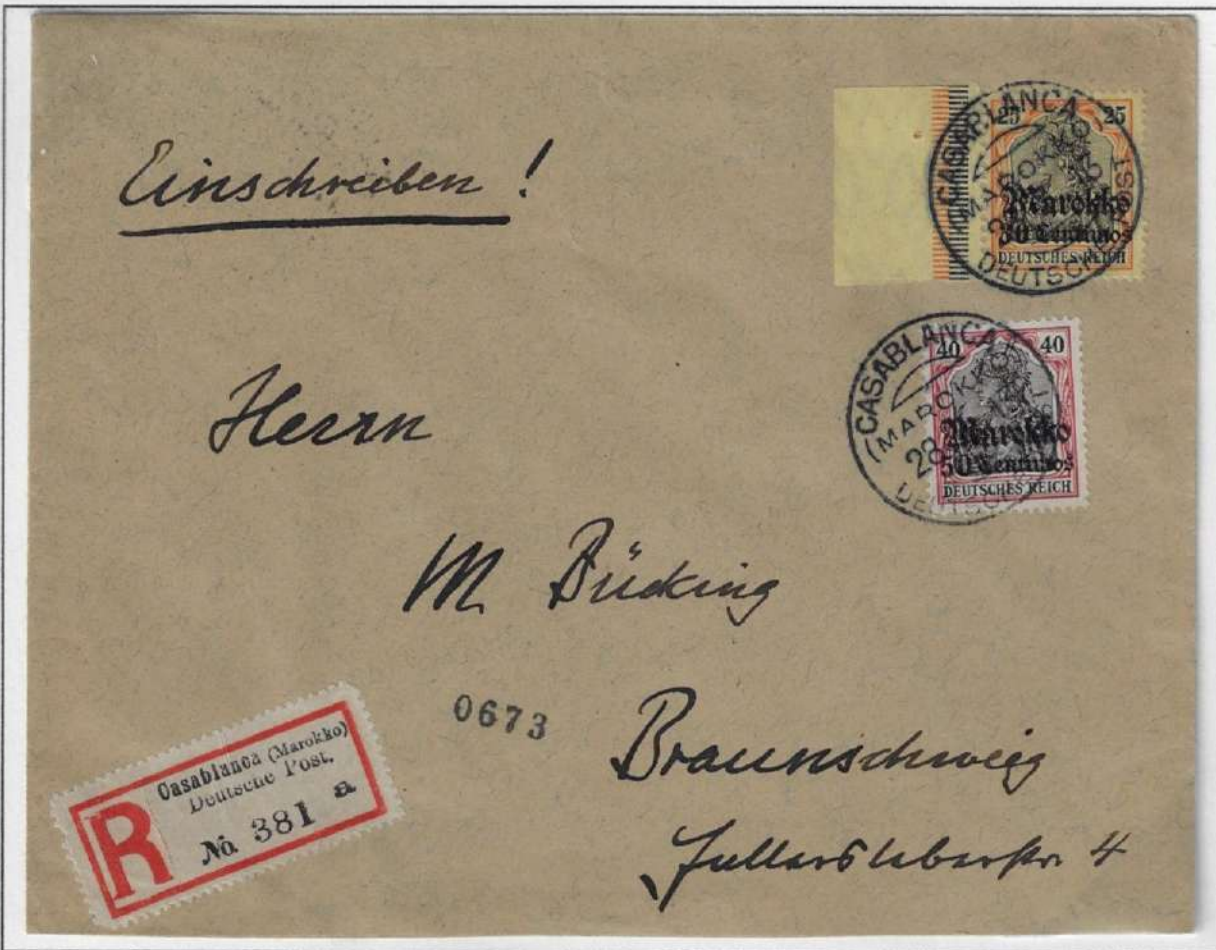 Einschreiben !
25 25
CASABLANCA
MAROKKO
DEUTSCHE POST
Marokko
30 Centimos
DEUTSCHES REICH
40 40
CASABLANCA
MAROKKO
28
DEUTSCHE
Marokko
50 Centimos
DEUTSCHES REICH
Herrn
M Bücking
0673
Braunschweig
Fallersleberstr. 4
R
Casablanca (Marokko)
Deutsche Post.
No. 381 a